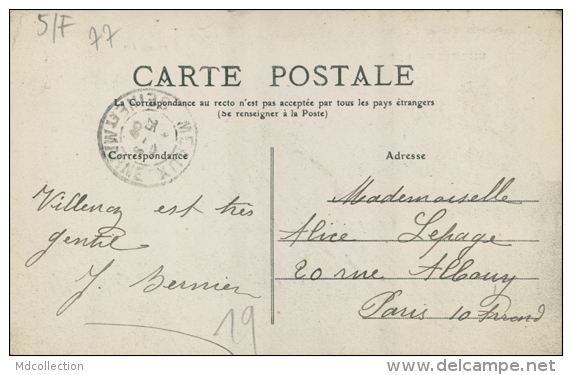 5/F 77
CARTE POSTALE
La Correspondance au recto n'est pas acceptée par tous les pays étrangers
(Se renseigner à la Poste)
MEAUX SEINE-ET-MARNE
Correspondance
Adresse
Villenoy est très
gentil
J. Bernier
Mademoiselle
Alice Lepage
20 rue Albouy
Paris 10
19
Mdcollection
delcampe.net